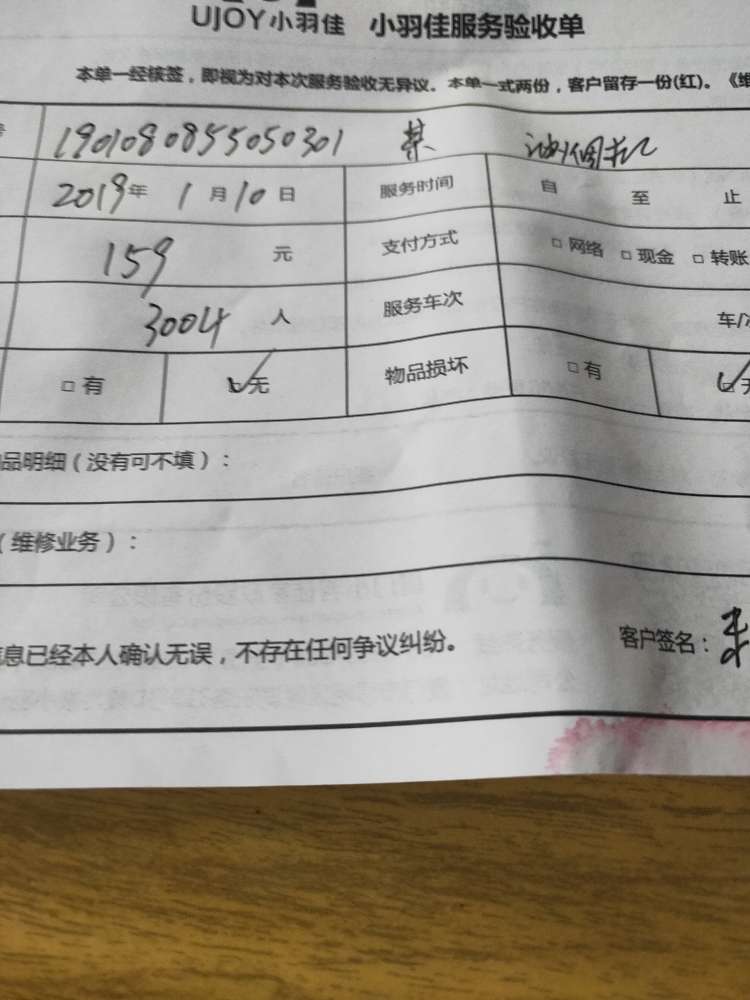 UJOY小羽佳 小羽佳服务验收单
本单一经核签，即视为对本次服务验收无异议。本单一式两份，客户留存一份(红)。《维
1901080855050301 油烟机
2019年 1月10日 服务时间 自 至 止
159 元 支付方式 □网络 □现金 □转账
3004 人 服务车次 车/次
□有 ☑无 物品损坏 □有 ☑无
品明细（没有可不填）：
（维修业务）：
信息已经本人确认无误，不存在任何争议纠纷。 客户签名：